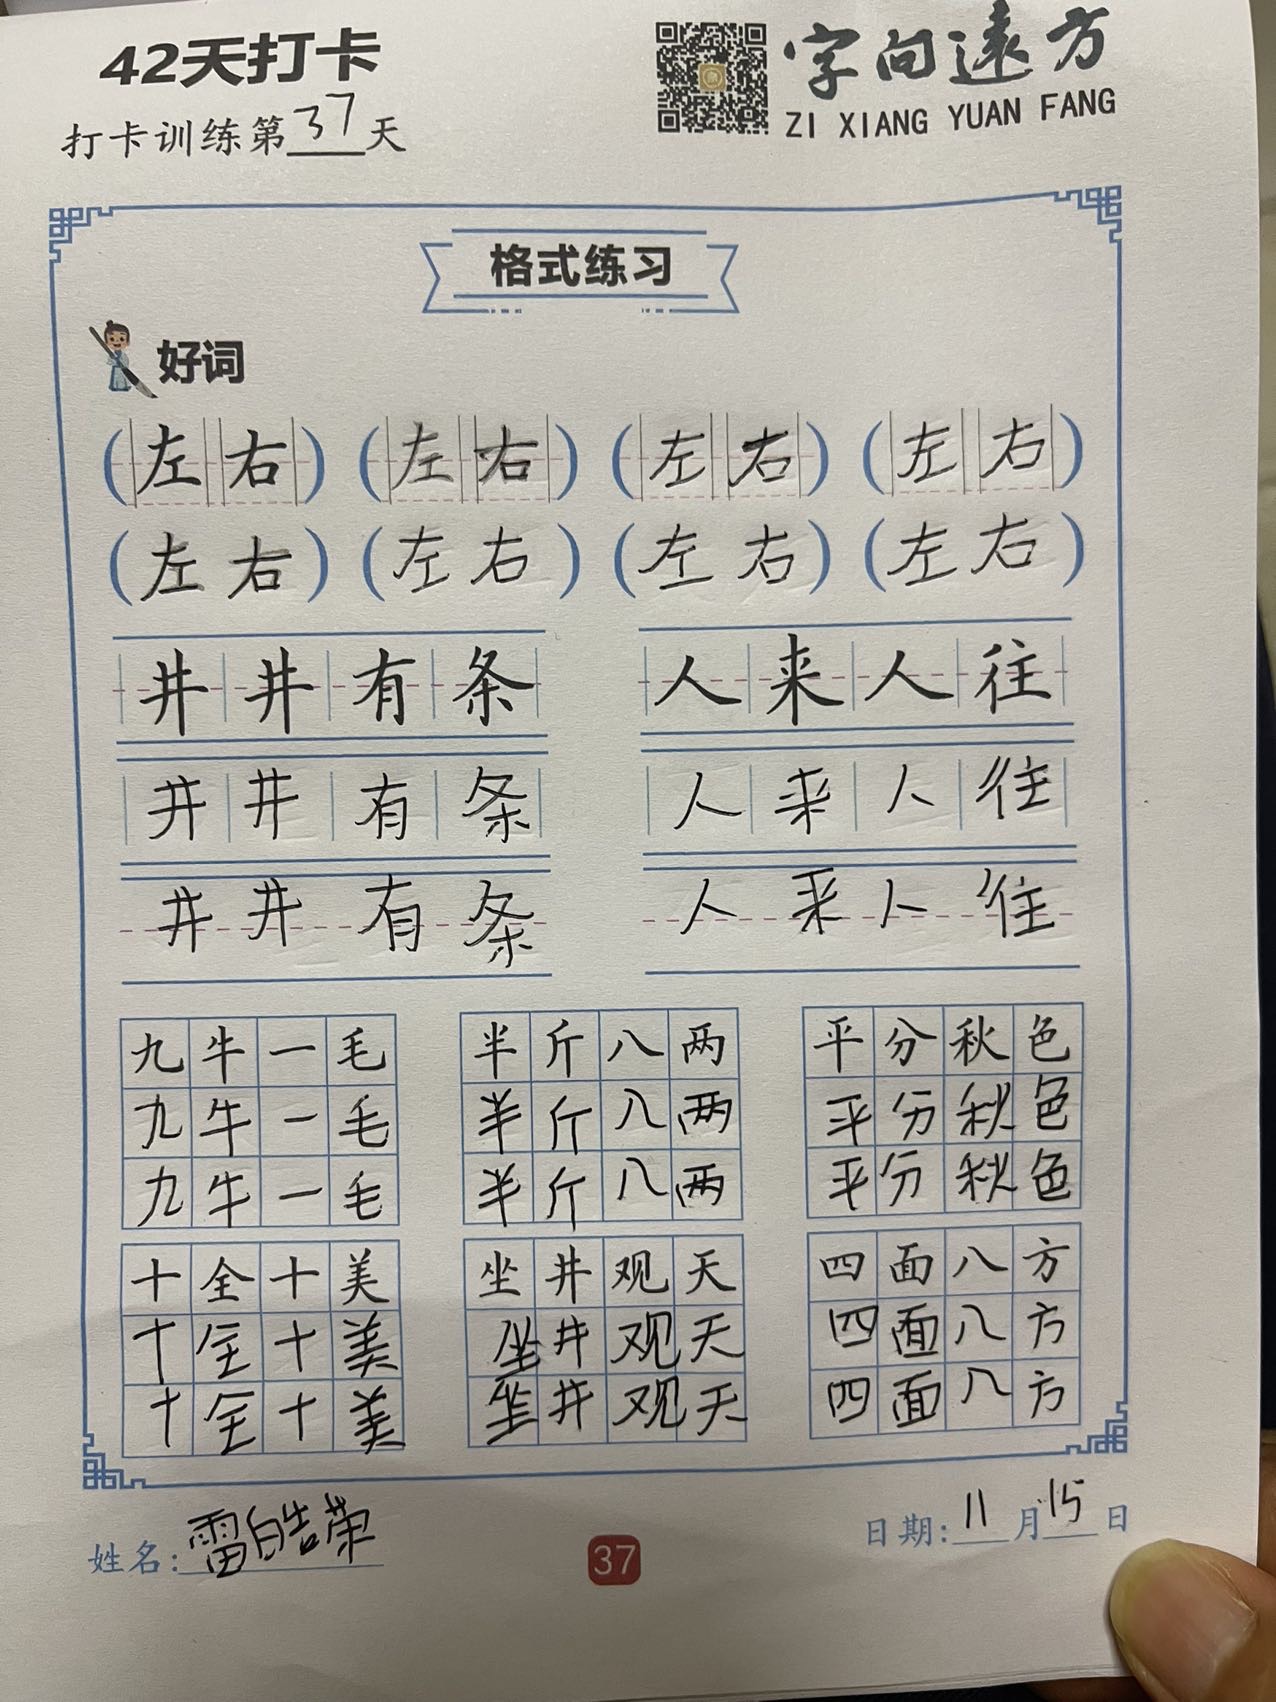 42天打卡
打卡训练第37天
字向远方
ZI XIANG YUAN FANG
格式练习
好词
(左右) (左右) (左右) (左右)
(左右) (左右) (左右) (左右)
井井有条 人来人往
井井有条 人来人往
井井有条 人来人往
九牛一毛 半斤八两 平分秋色
九牛一毛 半斤八两 平分秋色
九牛一毛 半斤八两 平分秋色
十全十美 坐井观天 四面八方
十全十美 坐井观天 四面八方
十全十美 坐井观天 四面八方
姓名:雷皓荣
37
日期:11月15日